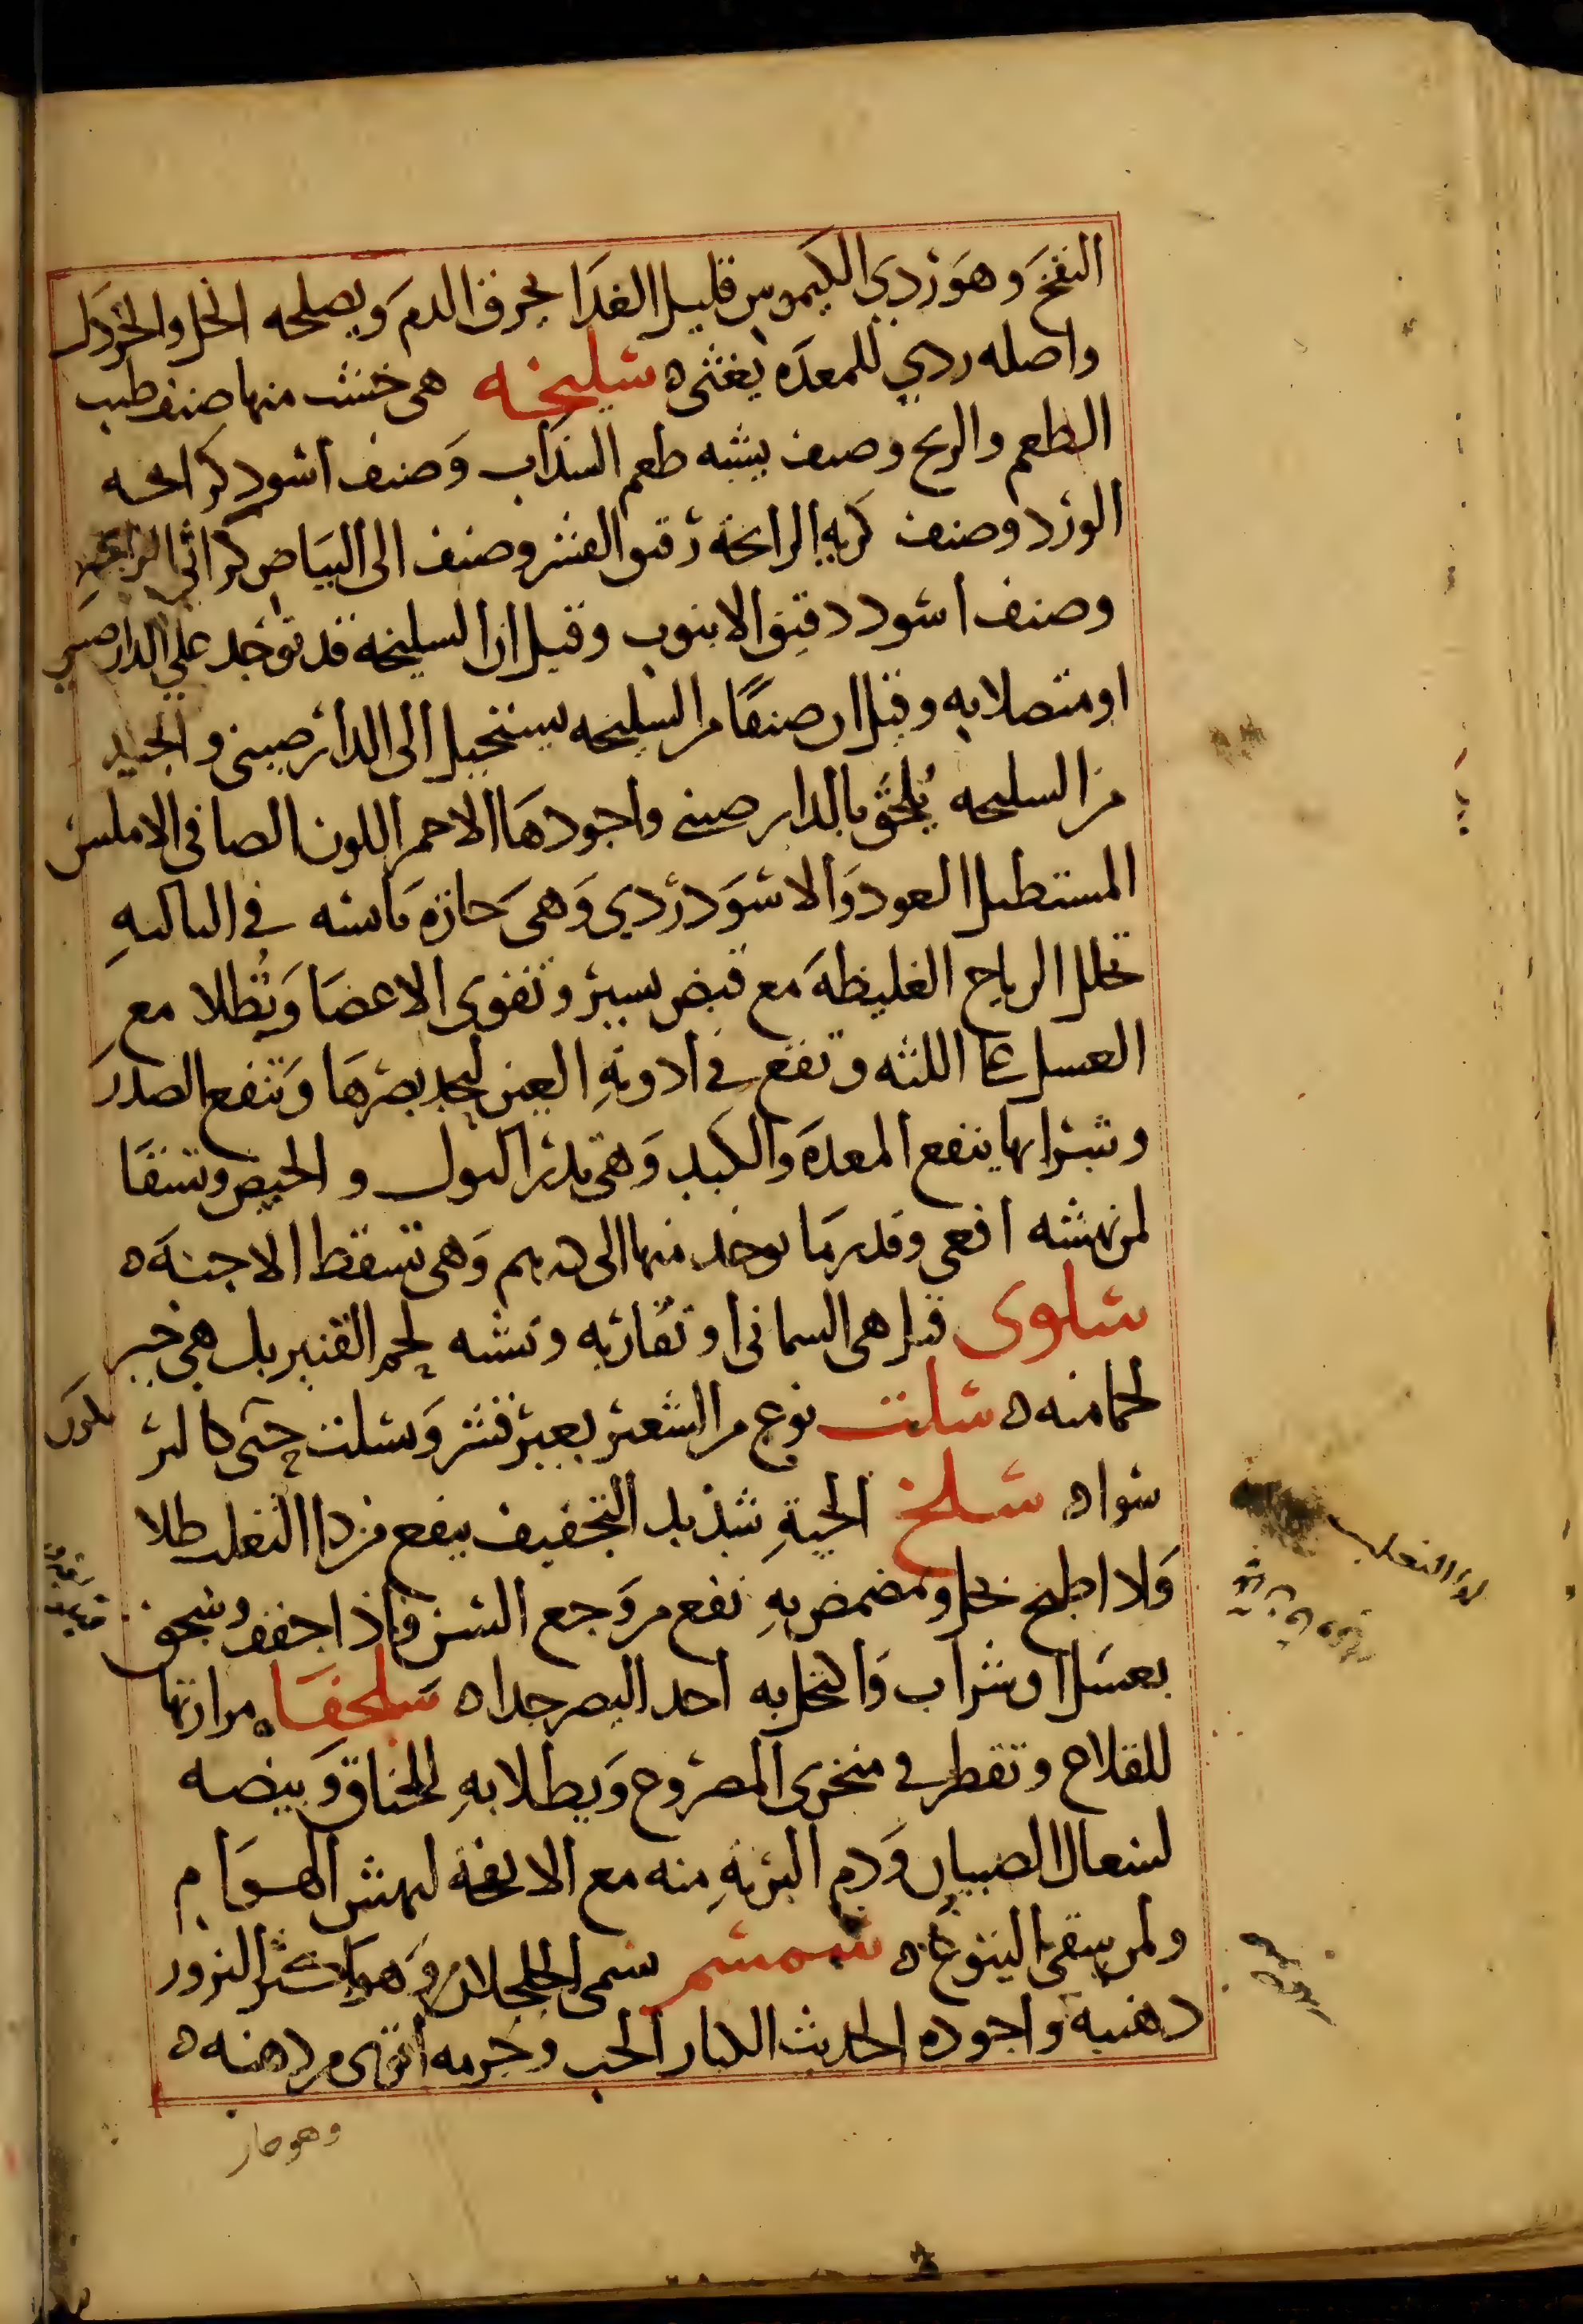 النفخ وهو ردي الكيموس قليل الغدا يحرق الدم ويصلحه الخل والخردل
واصله ردي للمعده يغثى ه سليخه هى خشب منها صنف طيب
الطعم والريح وصنف يشبه طعم السذاب وصنف اسود كرائحه
الورد وصنف كريه الرائحة رقيق القشر وصنف الى البياض كراثي الرائحه
وصنف اسود دقيق الانبوب وقيل ان السليخه قد توجد علي الدار صيني
او متصلا به وقيل ان صنفا من السليخه يستحيل الى الدار صيني والجيد
من السليخه يلحق بالدار صينى واجودها الاحمر اللون الصافى الاملس
المستطيل العود والاسود ردي وهى حارة يابسه في الثالثه
تحلل الرياح الغليظه مع قبض يسير وتقوى الاعضا وتطلا مع
العسل على اللثه وتقع في ادوية العين ليحد بصرها وتنفع الصدر
وشرابها ينفع المعده والكبد وهى تدر البول والحيض وتسقا
لمن نهشه افعى وقدر ما يوخذ منها الى درهم وهى تسقط الاجنه ه
سلوى قيل هى السمانى او تقاربه وتشبه لحم القنبر بل هى خير
لحما منه ه سلت نوع من الشعير بغير قشر وينسلت حتى كالبر
سواه سلخ الحية شديد التجفيف ينفع من دا الثعلب طلا
ولا اطبخ بخل ومضمض به نفع من وجع السن فاذا جفف وسحق
بعسل او شراب واكتحل به احد البصر جدا ه سلحفا مرارتها
للقلاع وتقطر في منخرى المصروع ويطلا به للخناق وبيضه
لسعال الصبيان ودم البرية منه مع الانفحة لنهش الهوام
ولمن سقى الينوع ه سمسم يسمى الجلجلان وهو اكثر البزور
دهنيه واجوده الحديث الكبار الحب وجرمه اقوى من دهنه ه
وهو حار